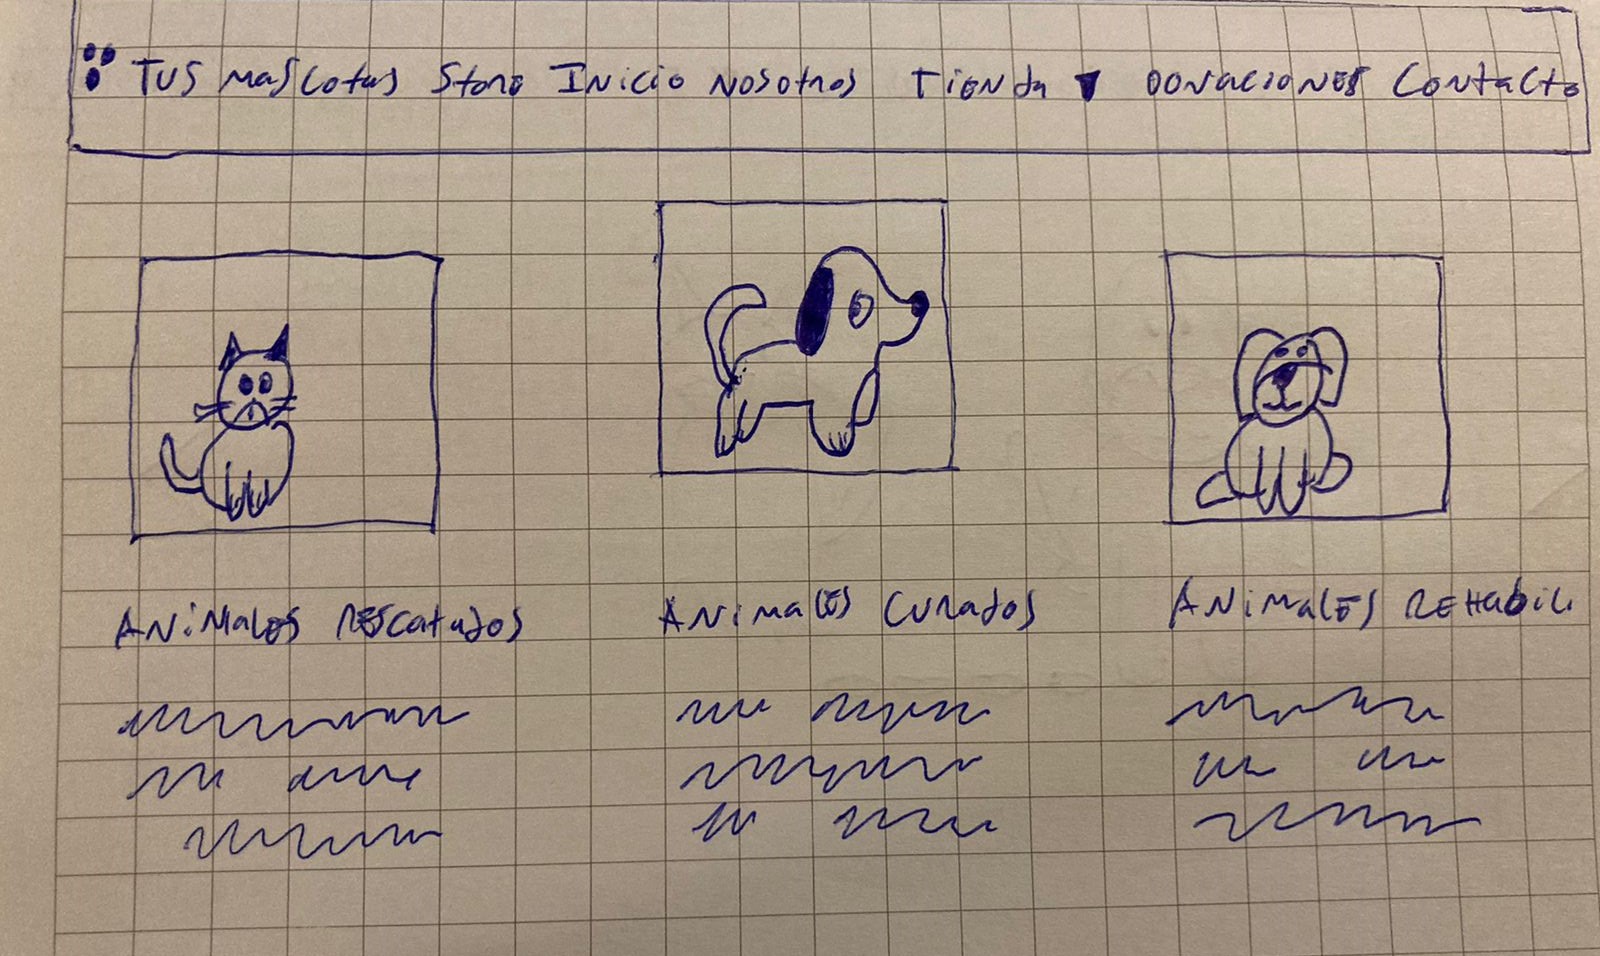 Tus mascotas Store Inicio Nosotros Tienda Donaciones Contacto
Animales rescatados
Animales curados
Animales rehabili